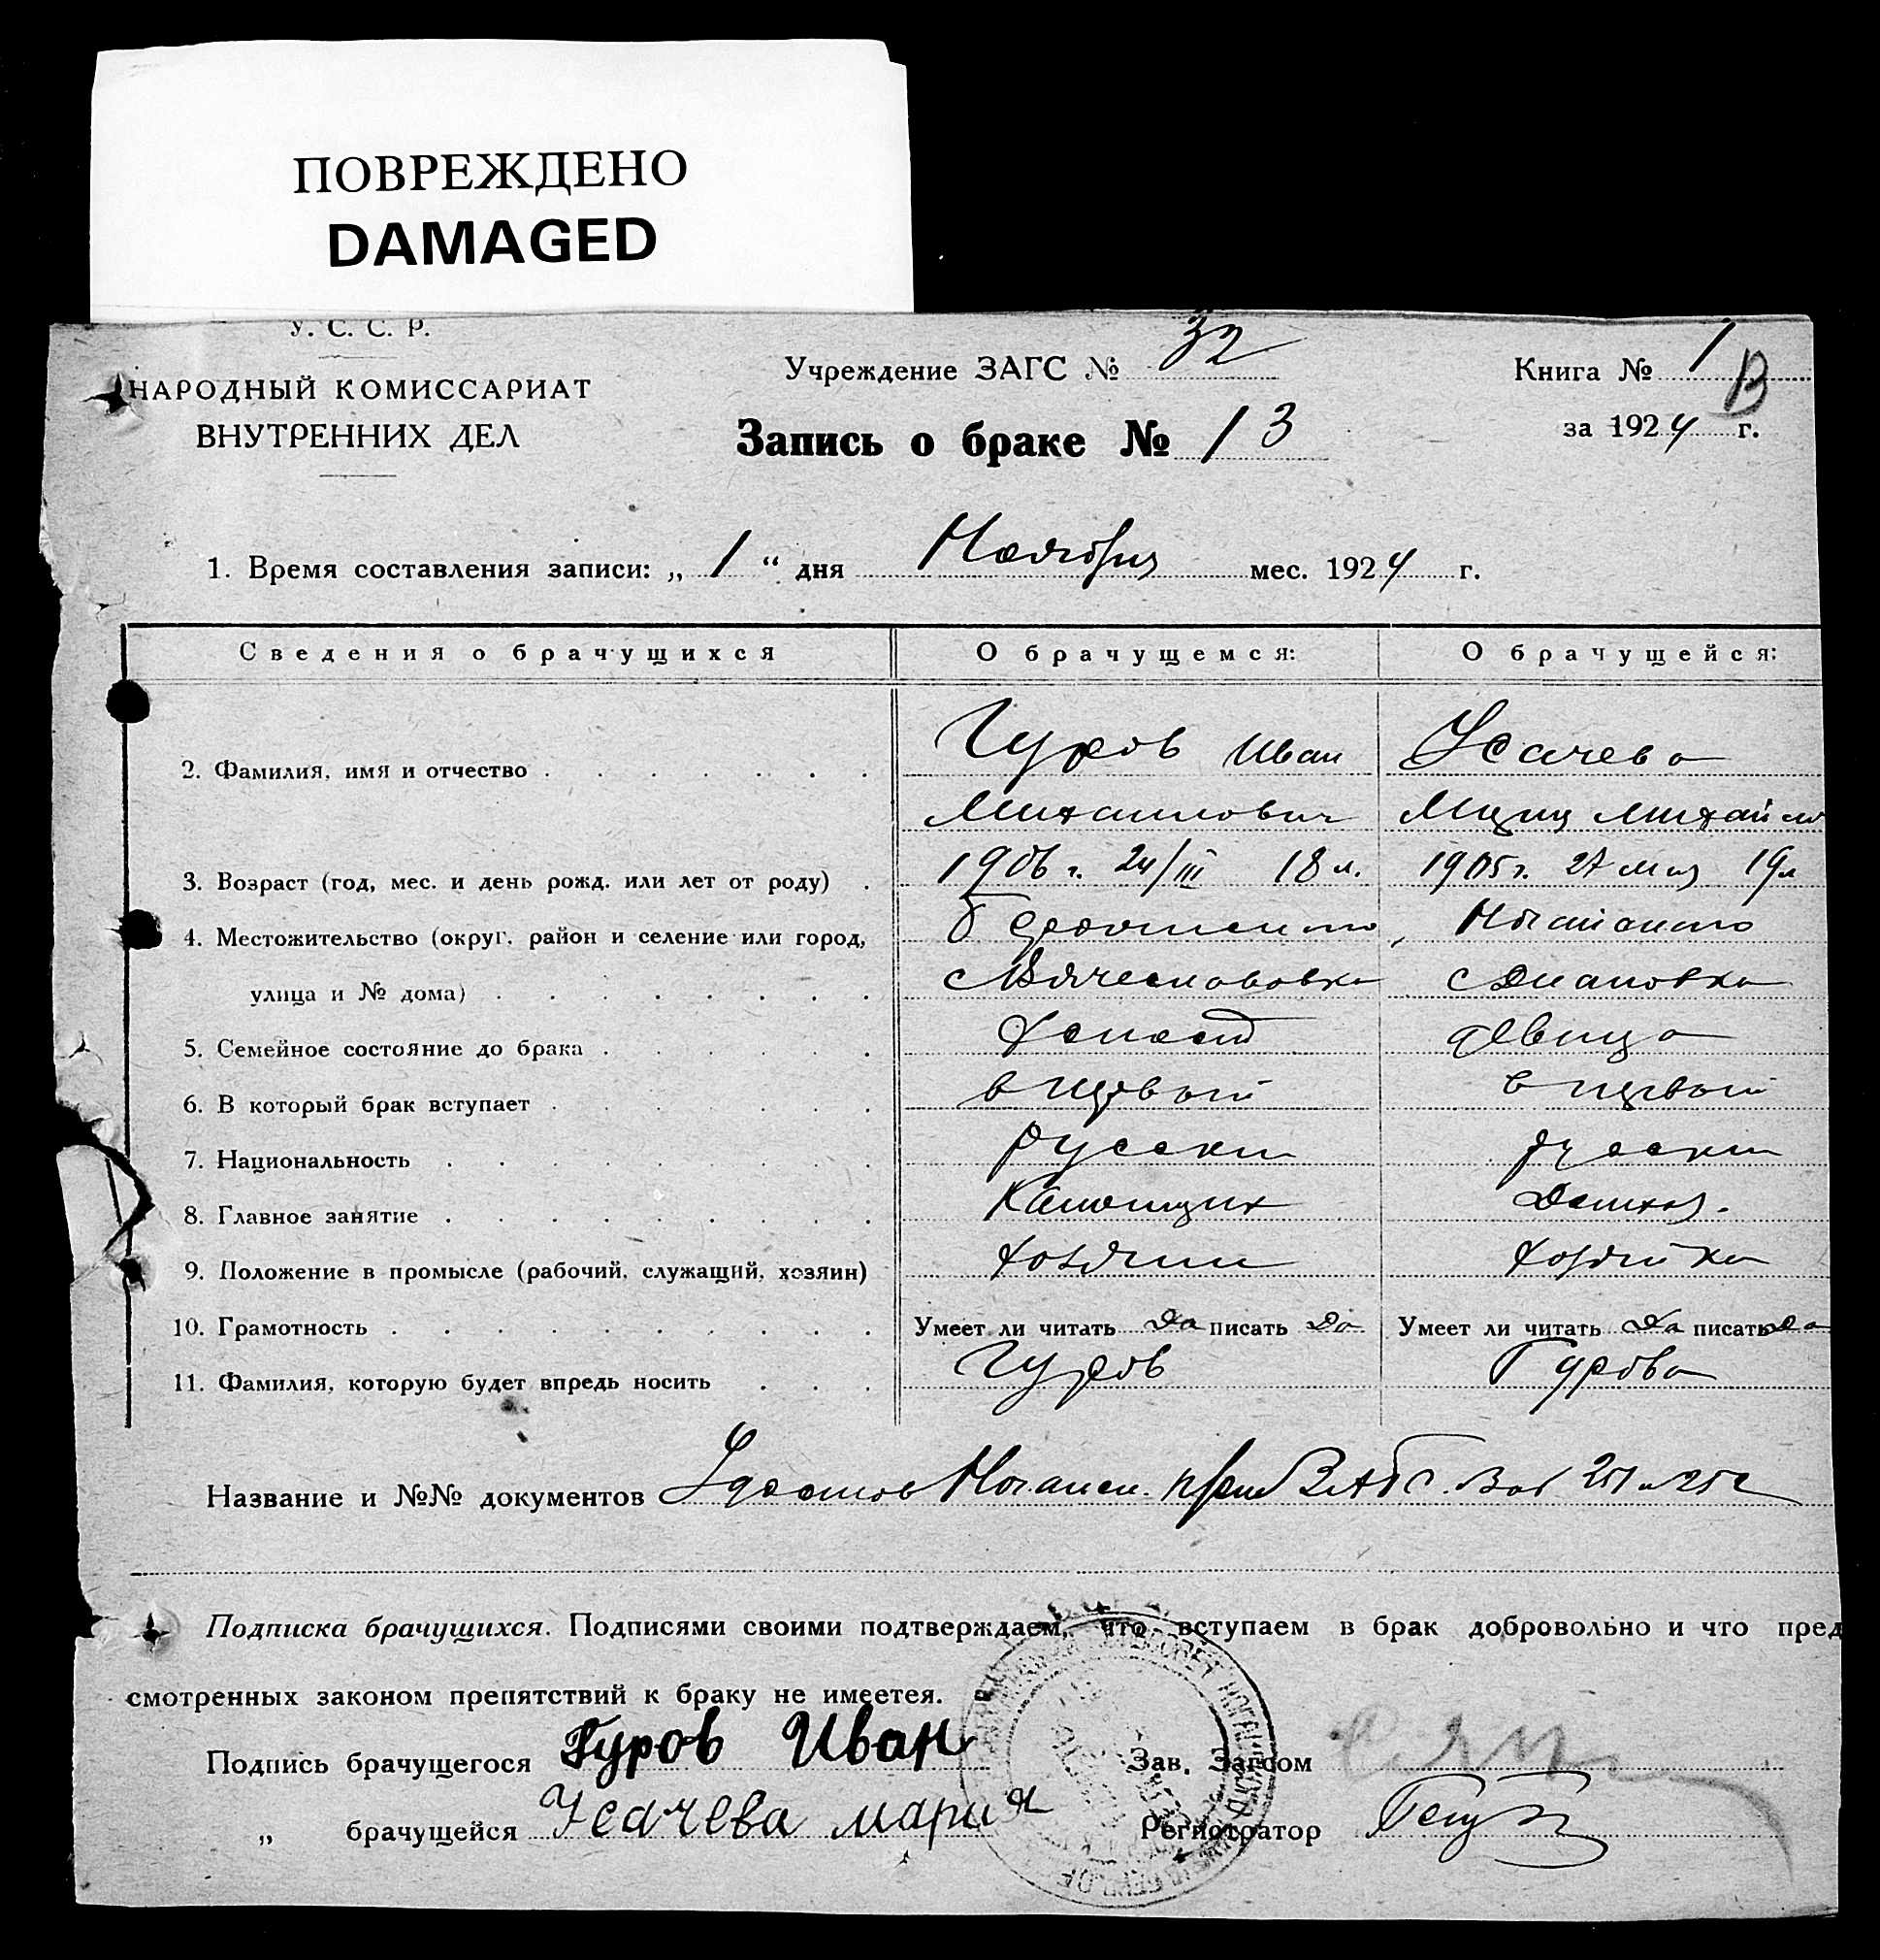 ПОВРЕЖДЕНО
DAMAGED
У. С. С. Р.
НАРОДНЫЙ КОМИССАРИАТ
ВНУТРЕННИХ ДЕЛ
Учреждение ЗАГС № 32
Книга № 1
В
за 1924 г.
Запись о браке № 13
1. Время составления записи: „ 1 “ дня Ноября мес. 1924 г.
Сведения о брачущихся О брачущемся: О брачущейся:
2. Фамилия, имя и отчество Гуров Иван Усачева
Михаилович Михайло
3. Возраст (год, мес. и день рожд. или лет от роду) 1906 г. 24/III 18 л. 1905 г. 27 мая 19 л
4. Местожительство (округ, район и селение или город, Ногайского
улица и № дома) с Вячеслововка с Диановка
5. Семейное состояние до брака холост девица
6. В который брак вступает в первый в первый
7. Национальность русский русский
8. Главное занятие Домхоз.
9. Положение в промысле (рабочий, служащий, хозяин) хозяин хозяйка
10. Грамотность Умеет ли читать да писать да Умеет ли читать да писать да
11. Фамилия, которую будет впредь носить Гуров Гурова
Название и №№ документов Ногайск. ЗАГС 251 и 252
Подписка брачущихся. Подписями своими подтверждаем, что вступаем в брак добровольно и что пред
смотренных законом препятствий к браку не имеется.
Подпись брачущегося Гуров Иван
Зав. Загсом
„ брачущейся Усачева мария
Регистратор